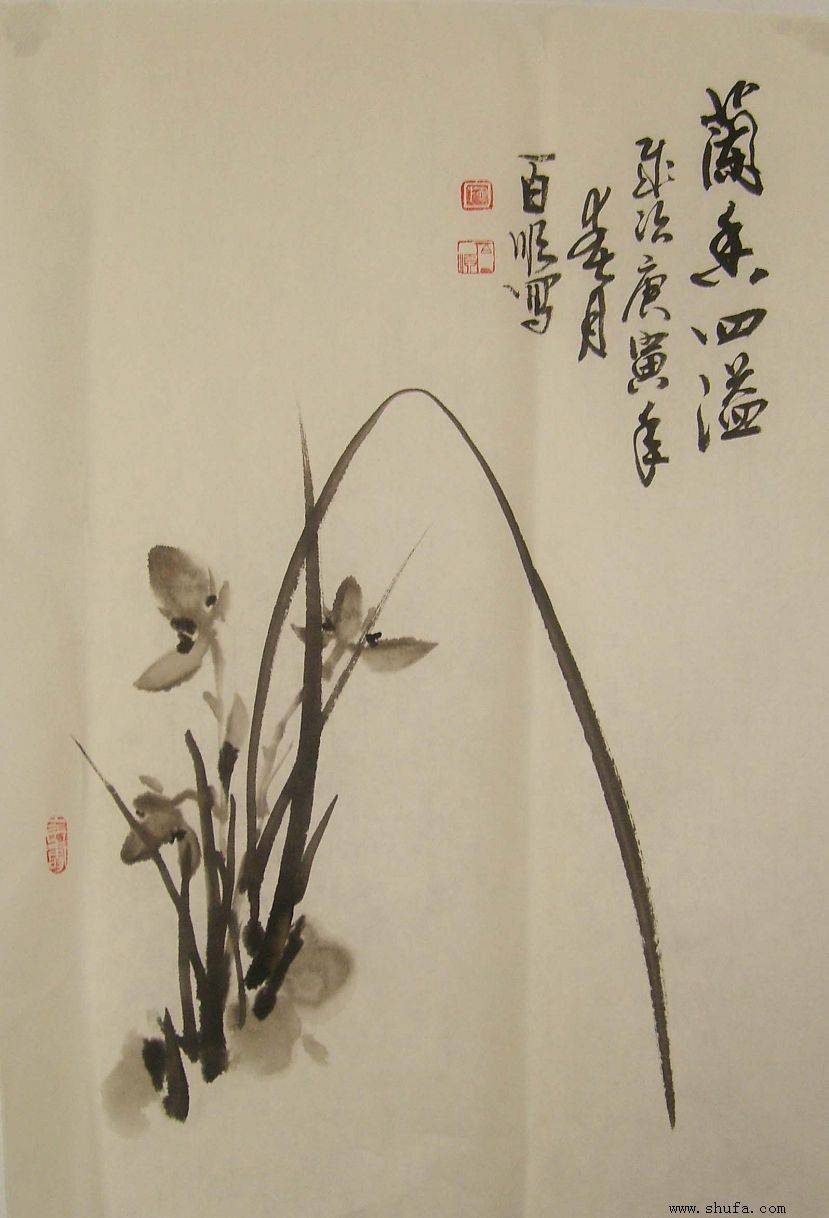 蘭香四溢
歲次庚寅年
春月
百順寫
www.shufa.com